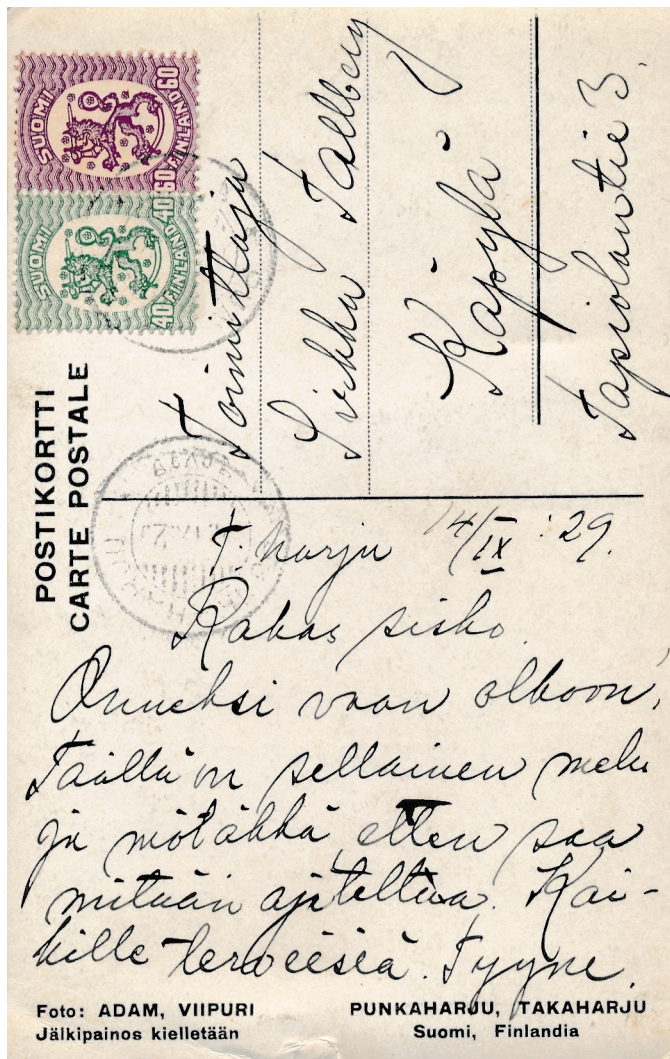 SUOMI
60
60
FINLAND
SUOMI
40
40
FINLAND
POSTIKORTTI
CARTE POSTALE
Toimittaja
Sirkka Tallberg
Käpylä
Tapiolantie 3.
T. harju 14/IX :29.
Rakas sisko.
Onneksi vaan olkoon,
Täällä on sellainen melu
ja möläkkä etten saa
mitään ajateltua. Kai-
kille terveisiä. Tyyne.
Foto: ADAM, VIIPURI
Jälkipainos kielletään
PUNKAHARJU, TAKAHARJU
Suomi, Finlandia